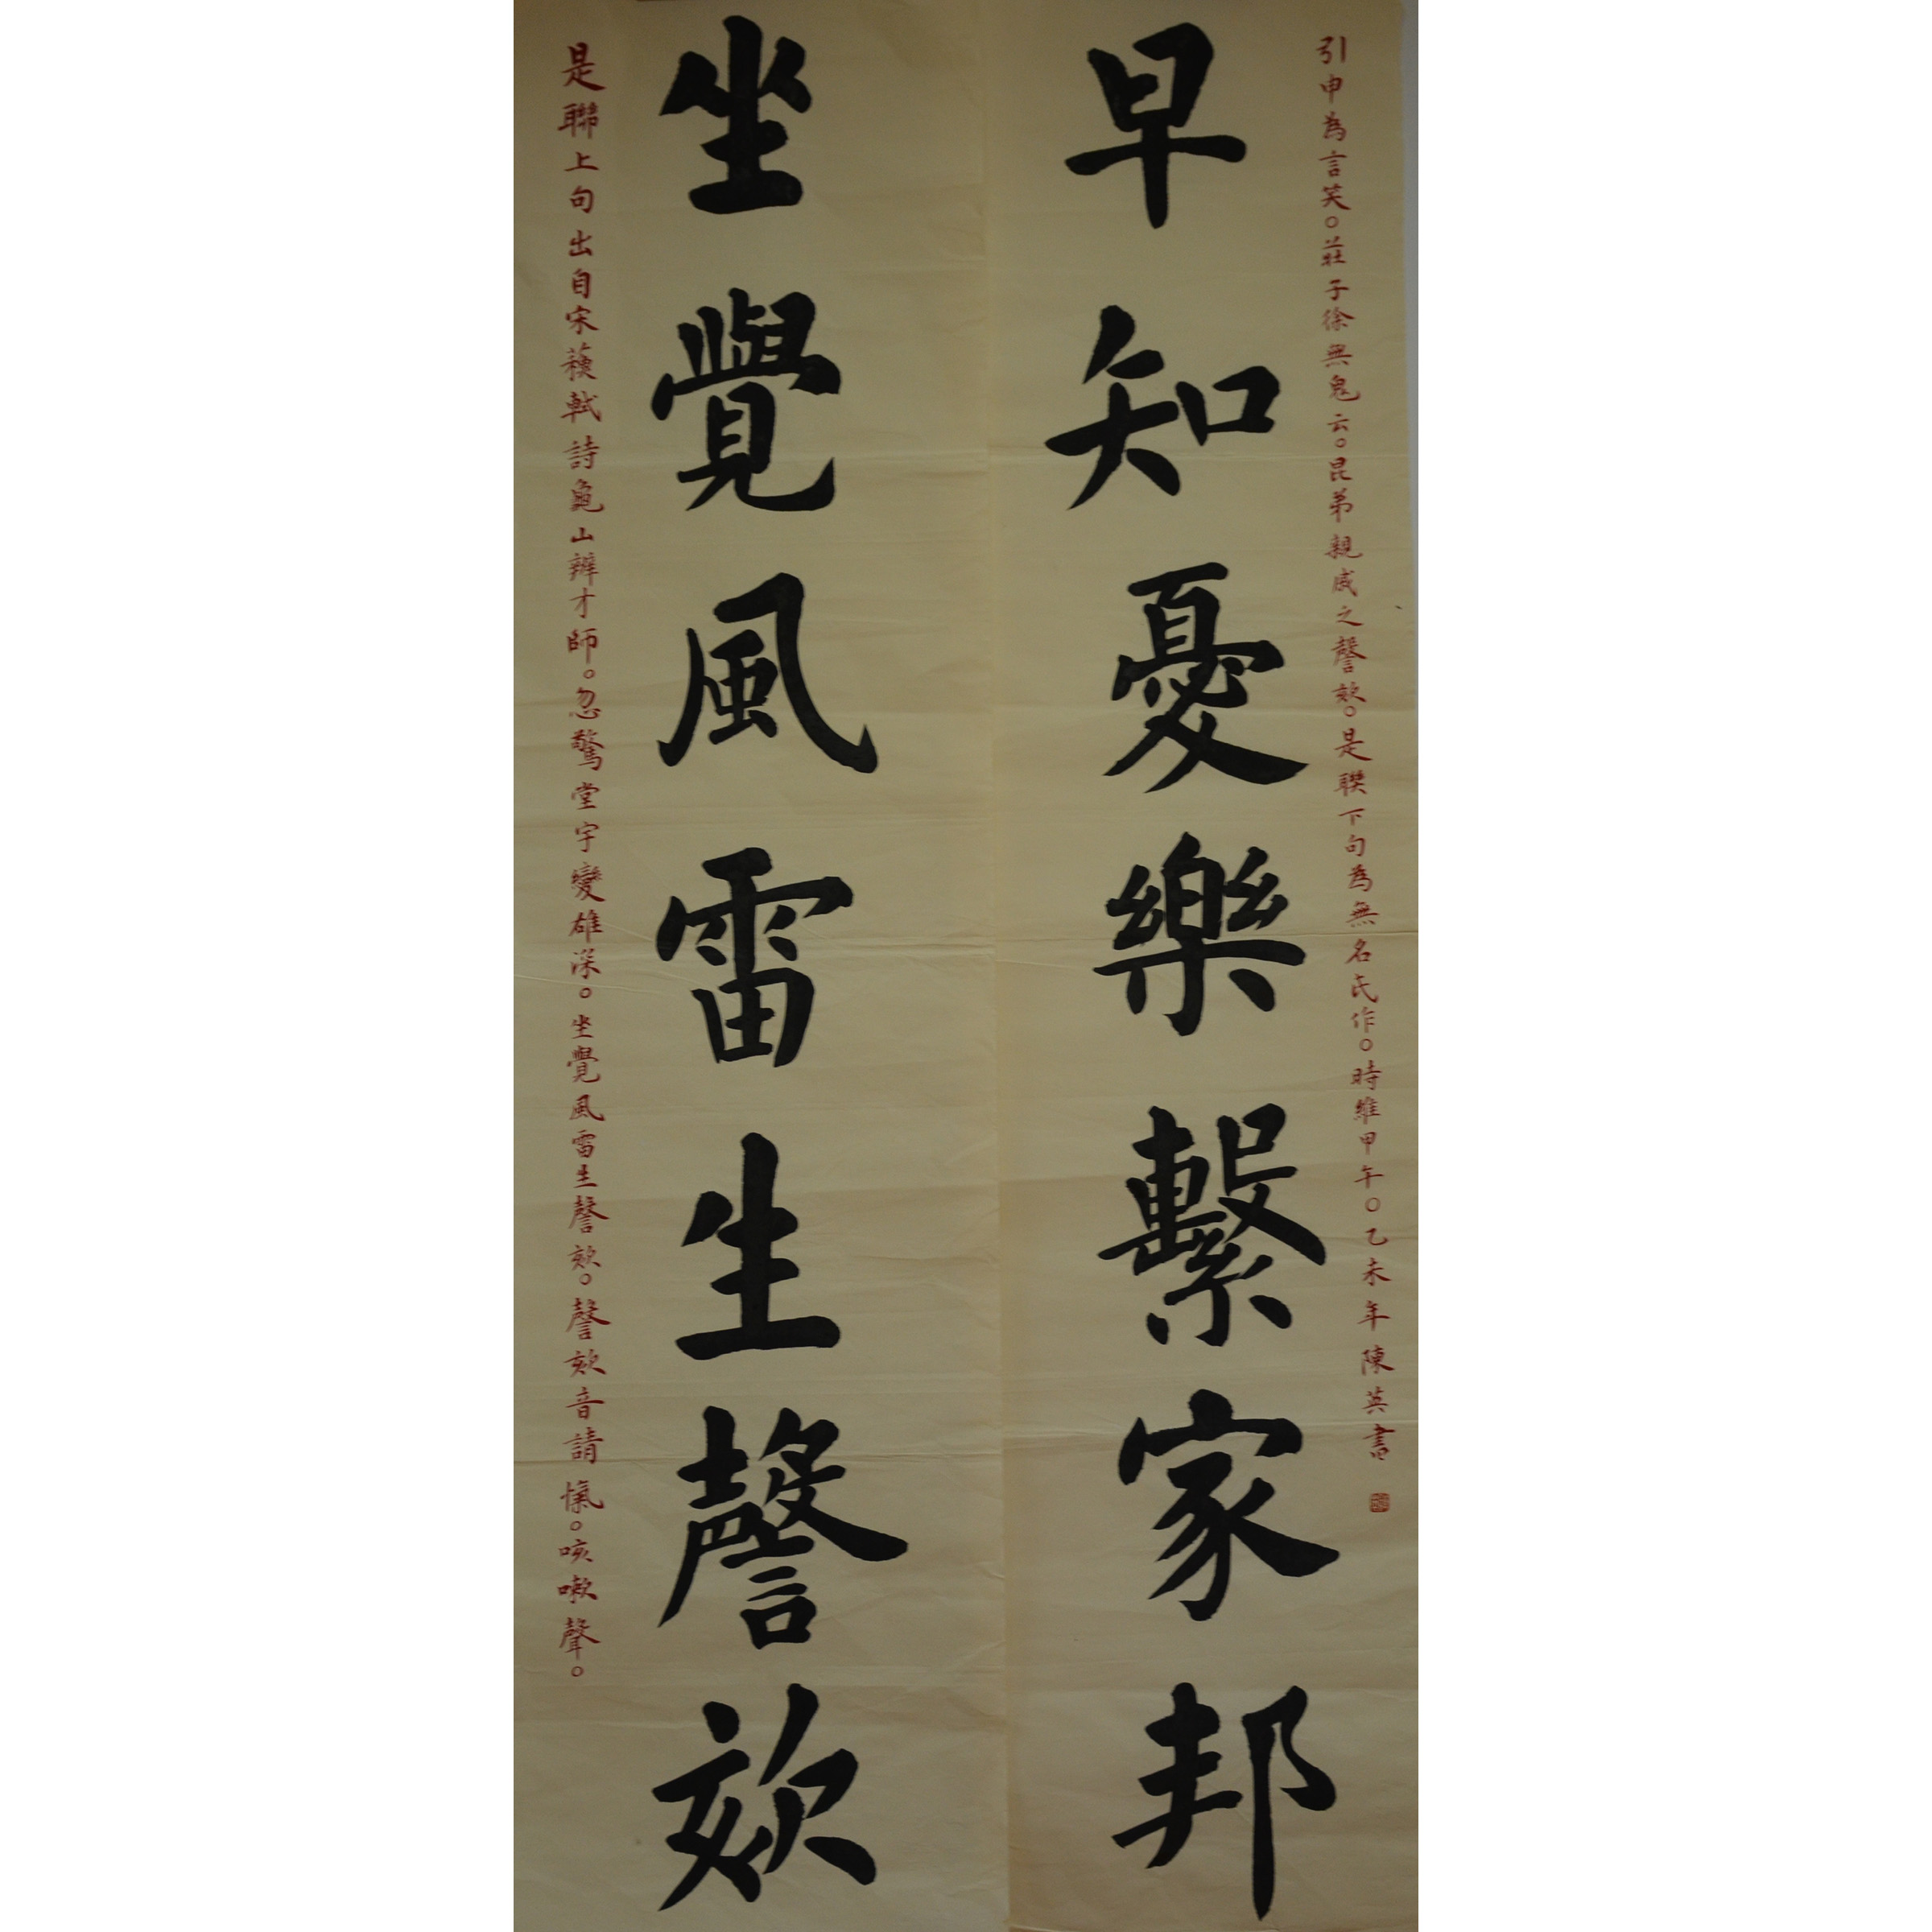 是聯上句出自宋蘓軾詩龜山辨才師。忽驚堂宇變雄深。坐覺風雷生謦欬。謦欬音請愾。咳嗽聲。
坐覺風雷生謦欬
早知憂樂繫家邦
引申為言笑。莊子徐無鬼云。昆弟親戚之謦欬。是聯下句為無名氏作。時維甲午。乙未年陳英書